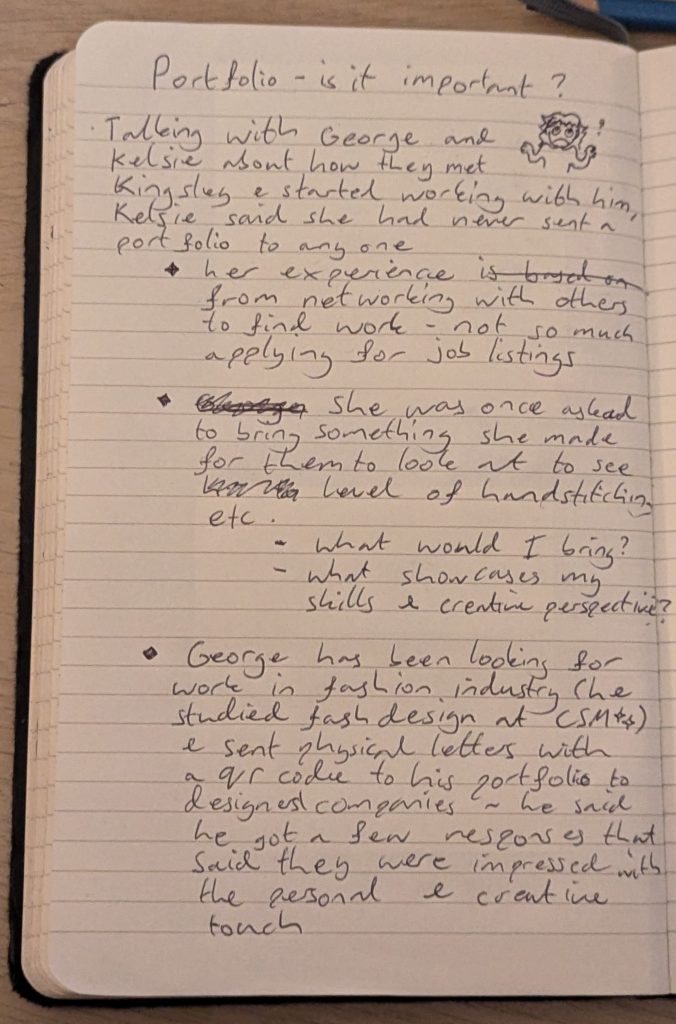 Portfolio - is it important?
Talking with George and
Kelsie about how they met
Kingsley & started working with him,
Kelsie said she had never sent a
portfolio to anyone
her experience is based on
from networking with others
to find work - not so much
applying for job listings
she was once asked
to bring something she made
for them to look at to see
level of handstitching
etc.
- what would I bring?
- what showcases my
skills & creative perspective?
George has been looking for
work in fashion industry (he
studied fash design at CSM**)
& sent physical letters with
a qr code to his portfolio to
designest companies ~ he said
he got a few responses that
said they were impressed with
the personal & creative
touch